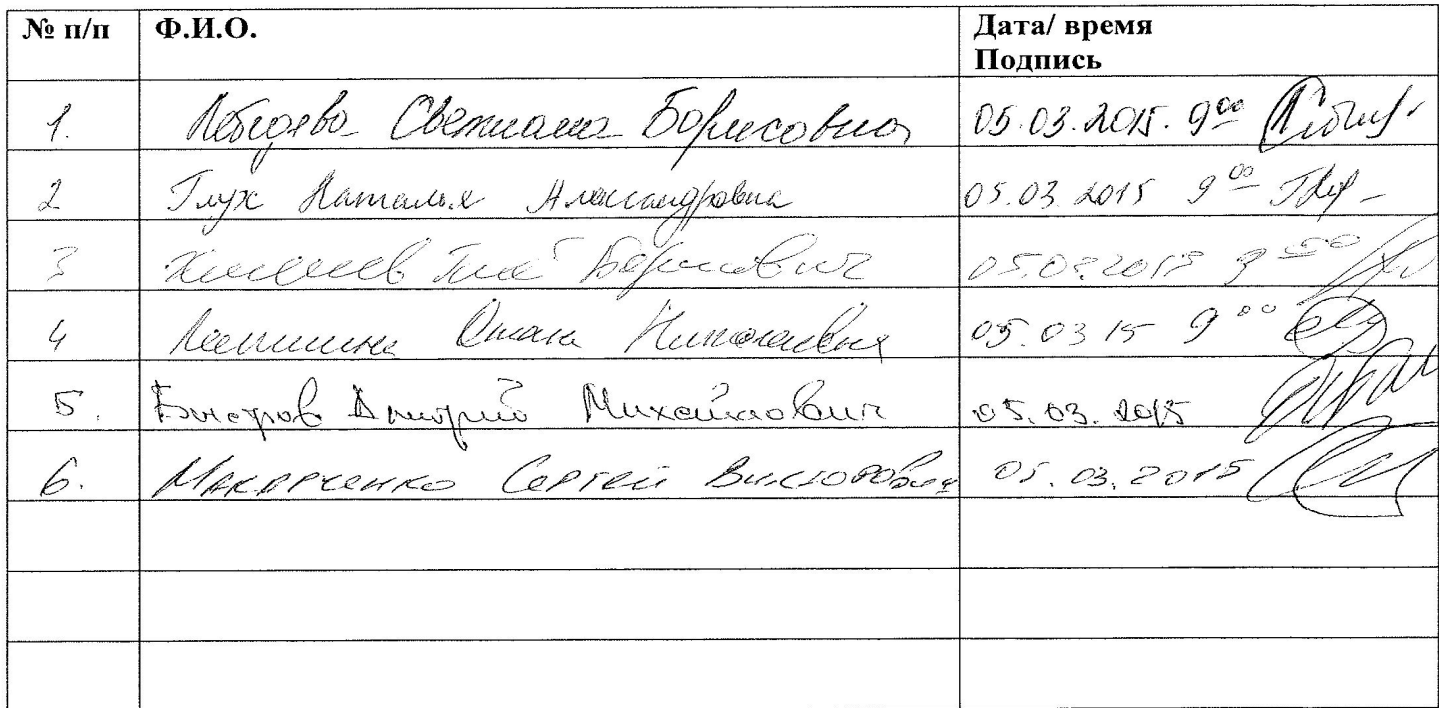 № п/п Ф.И.О. Дата/ время
Подпись
1. Лебедева Светлана Борисовна 05.03.2015. 9⁰⁰
2 Глух Наталья Александровна 05.03.2015 9⁰⁰
3 Борисович 05.03.2015 9⁰⁰
4 Николаевна 05.03 15 9⁰⁰
5. Быстров Дмитрий Михайлович 05.03.2015
6. Макарченко Сергей Викторович 05.03.2015